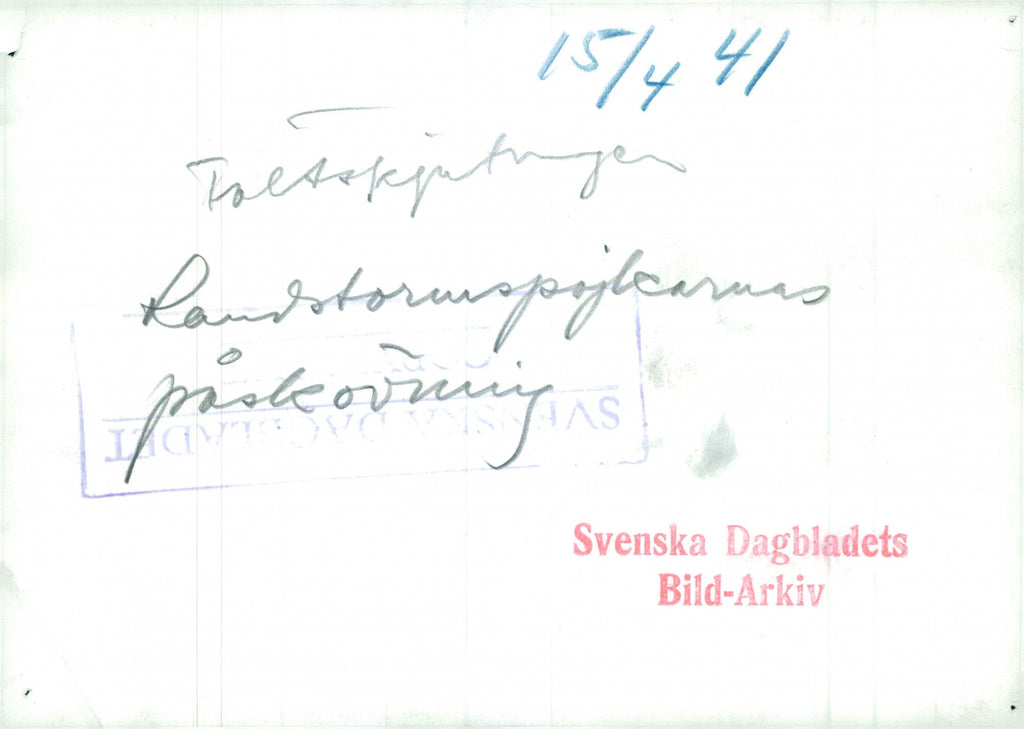 15/4 41
Fältskjutningen
Landstormspojkarnas
påskövning
SVENSKA DAGBLADET
Svenska Dagbladets
Bild-Arkiv